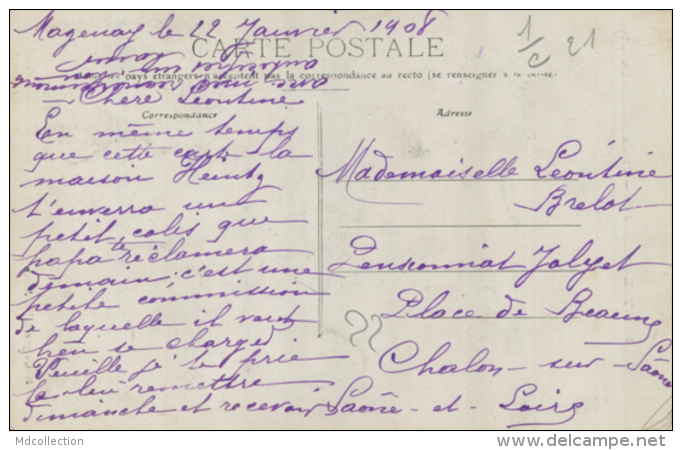 Magenay le 22 Janvier 1908
CARTE POSTALE
pays étrangers n'acceptent pas la correspondance au recto (se renseigner à la
Chère Léontine
Correspondance
En même temps
que cette carte la
maison Heintz
t'enverra un
petit colis que
papa te réclamera
demain; c'est une
petite commission
de laquelle il veut
bien se charger
Veuille je te prie
la lui remettre
dimanche et recevoir
Adresse
Mademoiselle Léontine
Brelot
Pensionnat Jolyet
Place de Beaune
Chalon-sur-Saône
Saône-et-Loire
1/c 21
22
Mdcollection
© delcampe.net